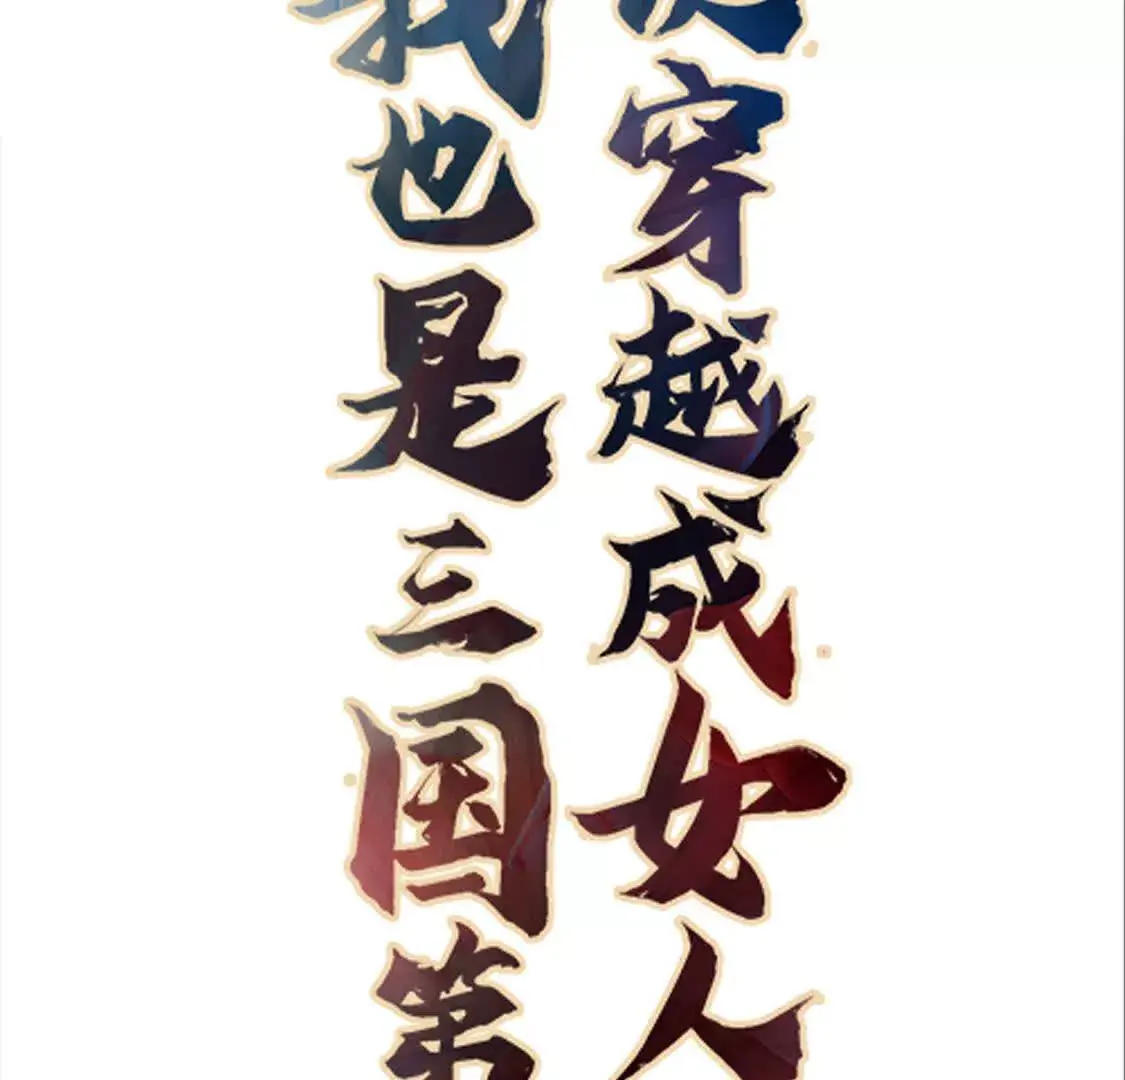 穿越成女人
我也是三国第